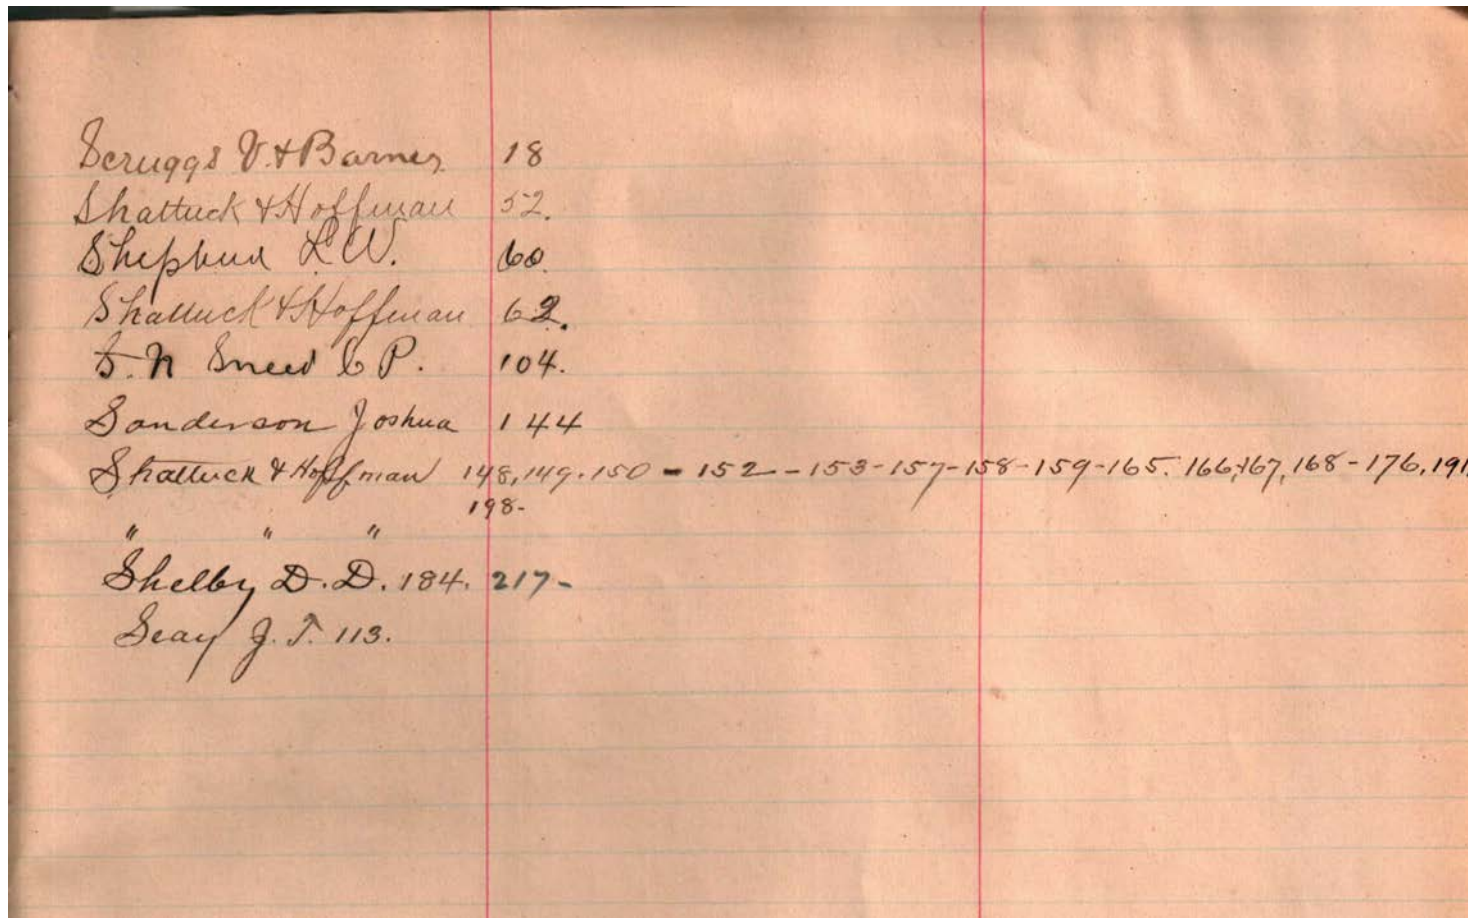 Scruggs V. & Barnes 18
Shattuck & Hoffman 52.
Shepherd L. W. 60.
Shattuck & Hoffman 62.
N Sneed C P. 104.
Sanderson Joshua 144
Shattuck & Hoffman 148, 149. 150 - 152 - 153 - 157 - 158 - 159 - 165. 166, 167, 168 - 176, 191,
198-
" " "
Shelby D. D. 184. 217-
Seay J. T. 113.